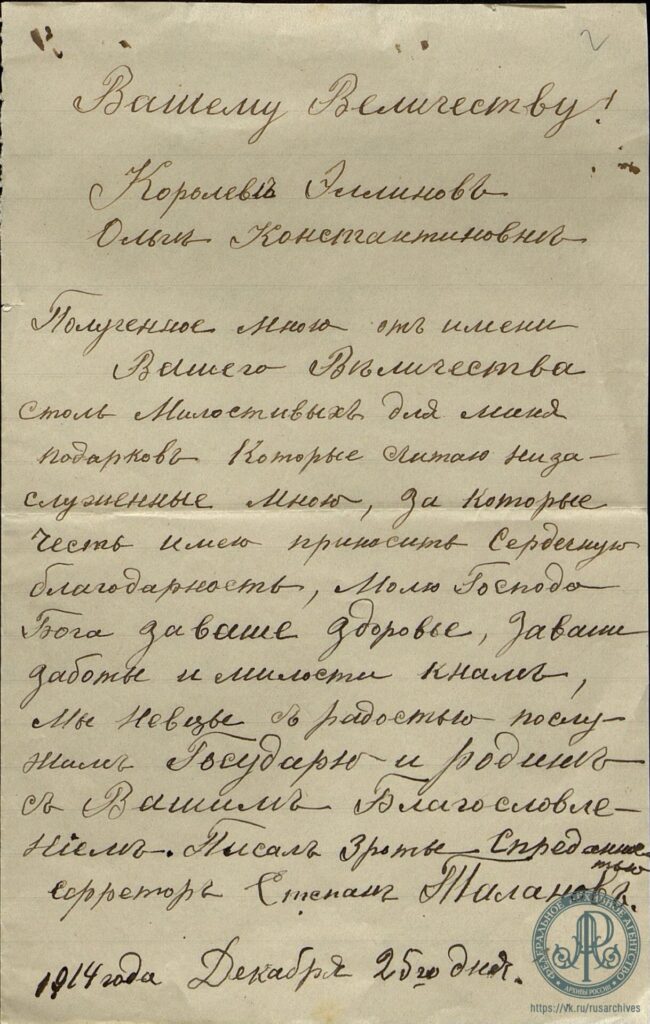 2
Вашему Величеству!
Королевѣ Эллиновъ
Ольгѣ Константиновнѣ
Полученное мною отъ имени
Вашего Вѣличества
столь Милостивыхъ для миня
подарковъ Которые считаю низа-
служенные мною, за которые
Честь имею приносить Сердечную
благодарность, Молю Господа
Бога заваше здоровье, заваши
заботы и милости кнамъ,
Мы Невцы съ радостью послу-
жимъ Государю и родинѣ
съ Вашимъ Благословле-
ніемъ. Писалъ 3роты Спреданнос-
тью
Степанъ Талановъ.
1914 года Декабря 25го дня.
ФЕДЕРАЛЬНОЕ АРХИВНОЕ АГЕНТСТВО
АРХИВЫ РОССИИ
https://vk.ru/rusarchives